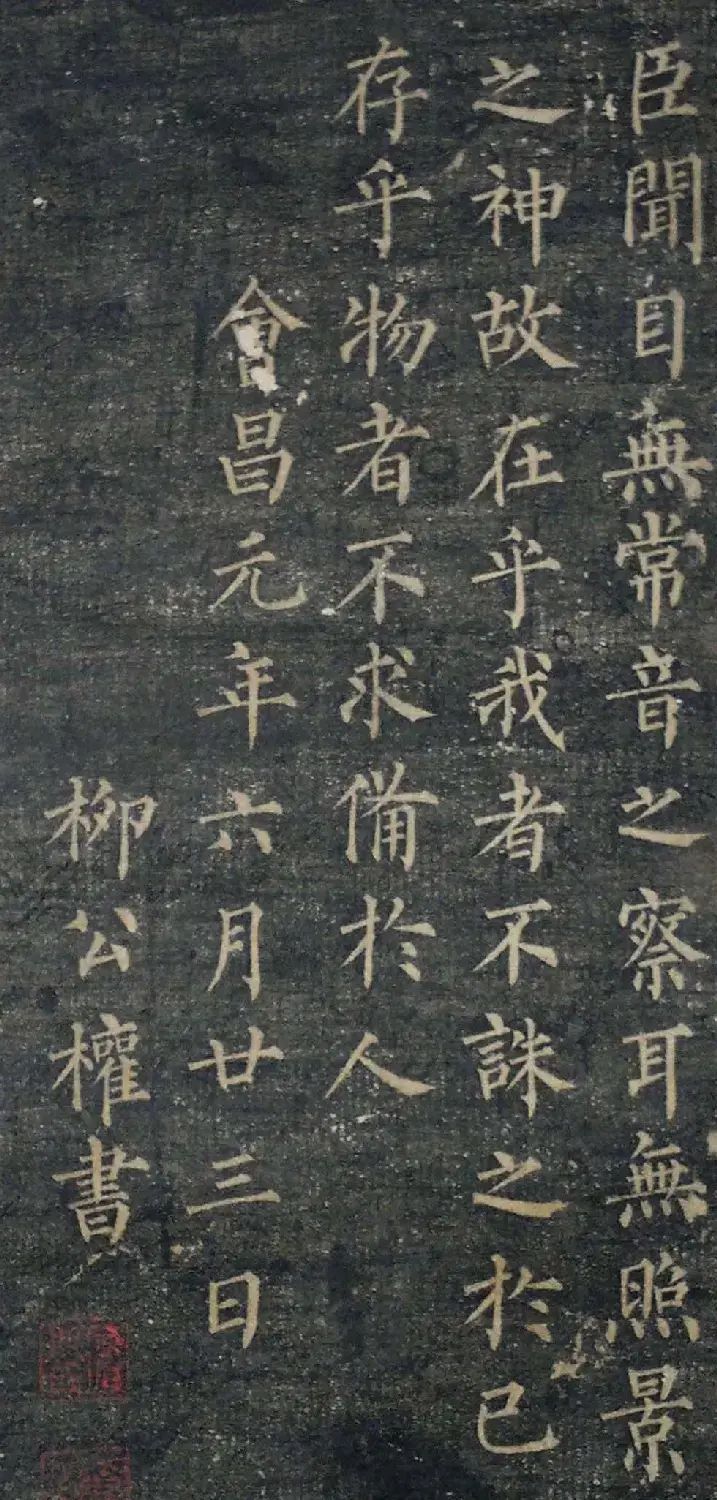 臣聞目無常音之察耳無照景
之神故在乎我者不誅之於已
存乎物者不求備於人
會昌元年六月廿三日
柳公權書